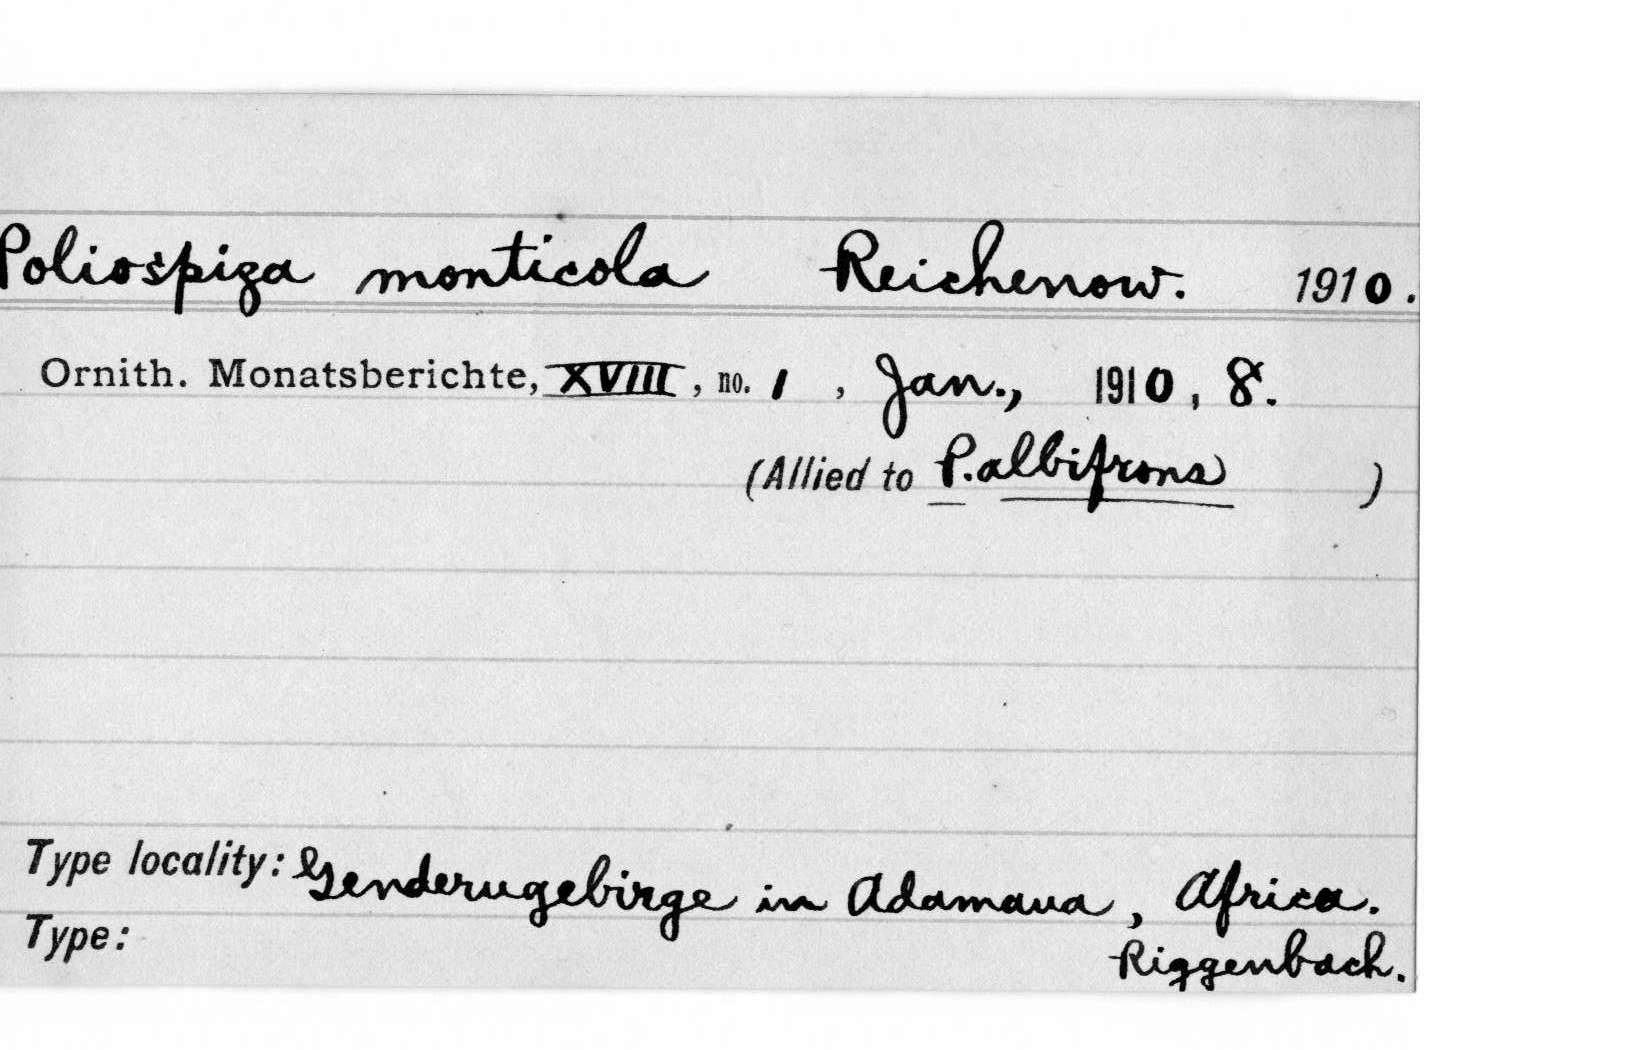 Poliospiza monticola Reichenow. 1910.
Ornith. Monatsberichte, XVIII, no. 1, Jan., 1910, 8.
(Allied to P. albifrons)
Type locality: Genderugebirge in Adamaua, Africa.
Type: Riggenbach.